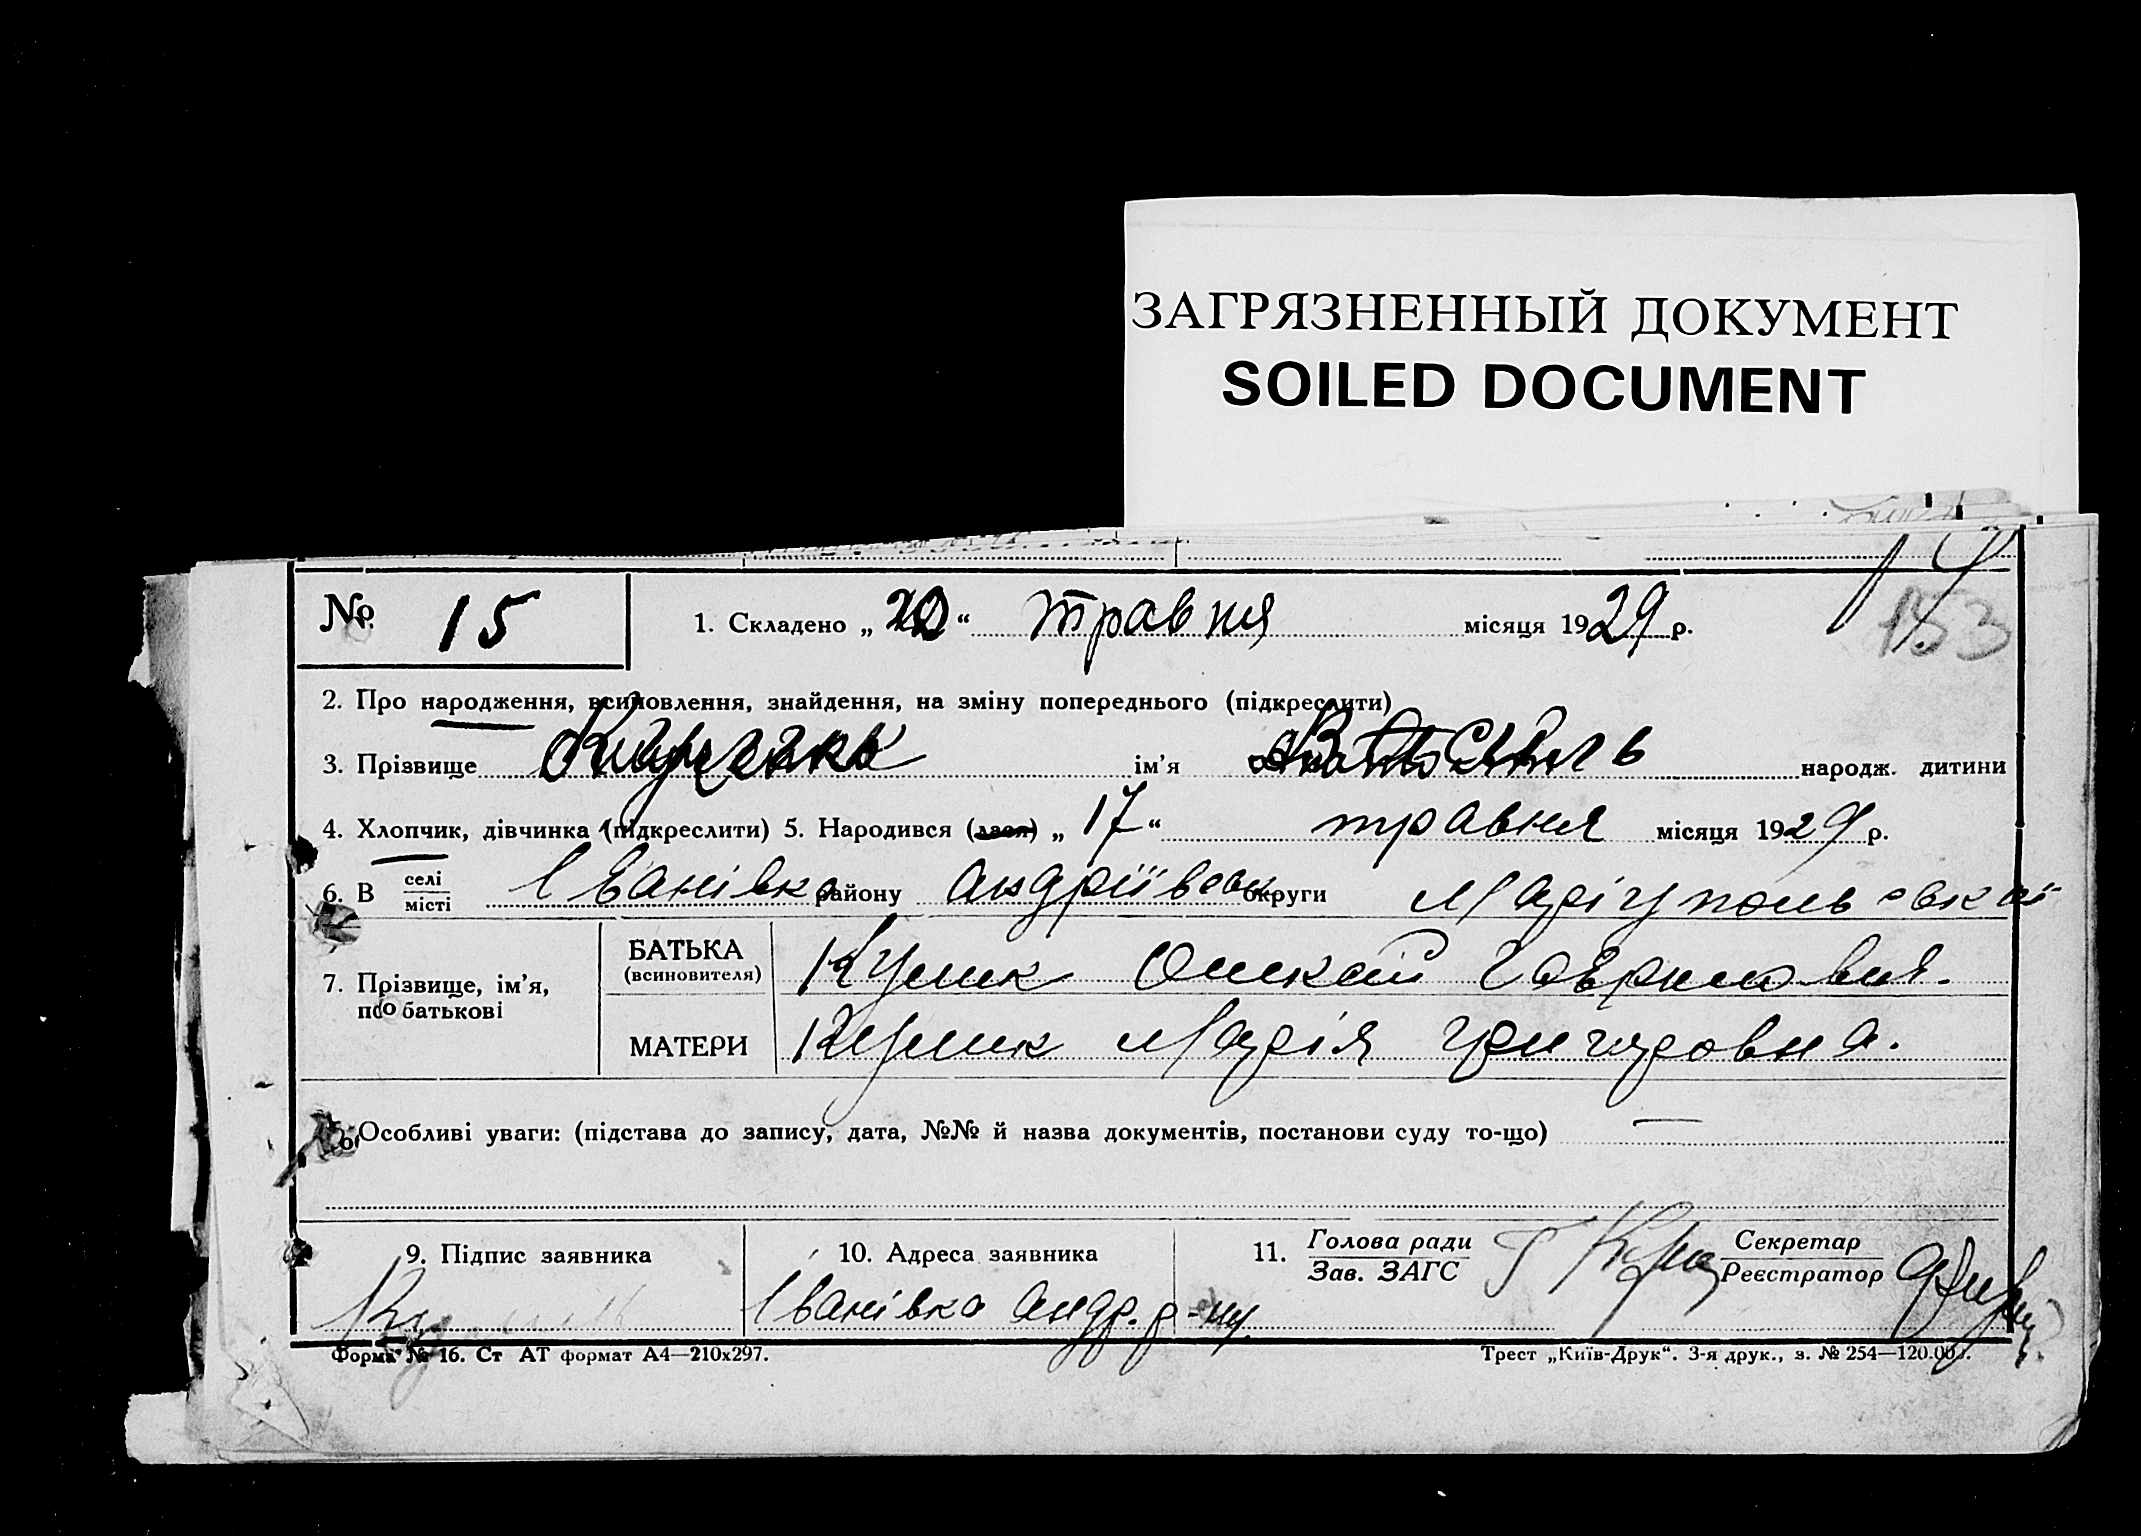 ЗАГРЯЗНЕННЫЙ ДОКУМЕНТ
SOILED DOCUMENT
№ 15
1. Складено „20“ травня місяця 1929 р.
153
2. Про народження, всиновлення, знайдення, на зміну попереднього (підкреслити)
3. Прізвище Кулик ім'я Василь народж. дитини
4. Хлопчик, дівчинка (підкреслити) 5. Народився (лася) „17“ травня місяця 1929 р.
6. В селі місті Іванівка району Андріївськ округи Маріупольської
7. Прізвище, ім'я, по батькові
БАТЬКА (всиновителя) Кулик
МАТЕРИ Кулик Марія Григоровна.
Особливі уваги: (підстава до запису, дата, №№ й назва документів, постанови суду то-що) —
9. Підпис заявника
10. Адреса заявника Іванівка Андр. р-ну.
11. Голова ради Зав. ЗАГС Секретар Реєстратор
Форма № 16. Ст АТ формат А4—210х297.
Трест „Київ-Друк“. 3-я друк., з. № 254—120.00